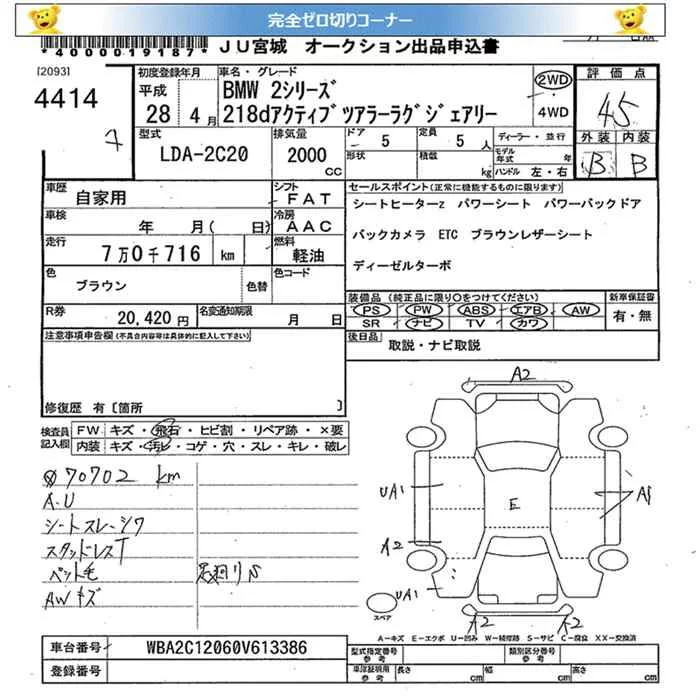 完全ゼロ切りコーナー
*4000019187* JU宮城 オークション出品申込書
[2093]
4414
初度登録年月
平成
28 4月
車名・グレード
BMW 2シリーズ
218dアクティブツアラーラグジェアリー
2WD
・
4WD
評価点
4.5
外装 内装
B B
型式
LDA-2C20
排気量
2000
cc
ドア 5
形状
定員 5 人
積載 kg
ディーラー・並行
モデル年式 年
ハンドル 左・右
車歴
自家用
シフト
FAT
車検
年 月( 日)
冷房
AAC
走行
7万0千716 km
燃料
軽油
色
ブラウン
色替
色コード
R券
20,420円
名変通知期限
月 日
セールスポイント(正常に機能するものに限ります)
シートヒーターz パワーシート パワーバックドア
バックカメラ ETC ブラウンレザーシート
ディーゼルターボ
装備品(純正品に限り○をつけてください)
PS・PW・ABS・エアB・AW
SR・ナビ・TV・カワ
新車保証書
有・無
後日品
取説・ナビ取説
注意事項申告欄(不具合内容等は具体的に記入して下さい)
修復歴 有〔箇所 〕
検査員
記入欄
FW キズ・飛石・ヒビ割・リペア跡・×要
内装 キズ・汚レ・コゲ・穴・スレ・キレ・破レ
70702 km
A.U
シートスレ・シワ
スタッドレスT
ペット毛
AWキズ
A2
UA1
E
A1
A2
UA1
A2 A2
スペア
A-キズ E-エクボ U-凹み W-補修跡 S-サビ C-腐食 XX-交換済
車台番号
WBA2C12060V613386
登録番号
型式指定番号
参考
類別区分番号
参考
車庫証明用
参考
長さ cm
幅 cm
高さ cm